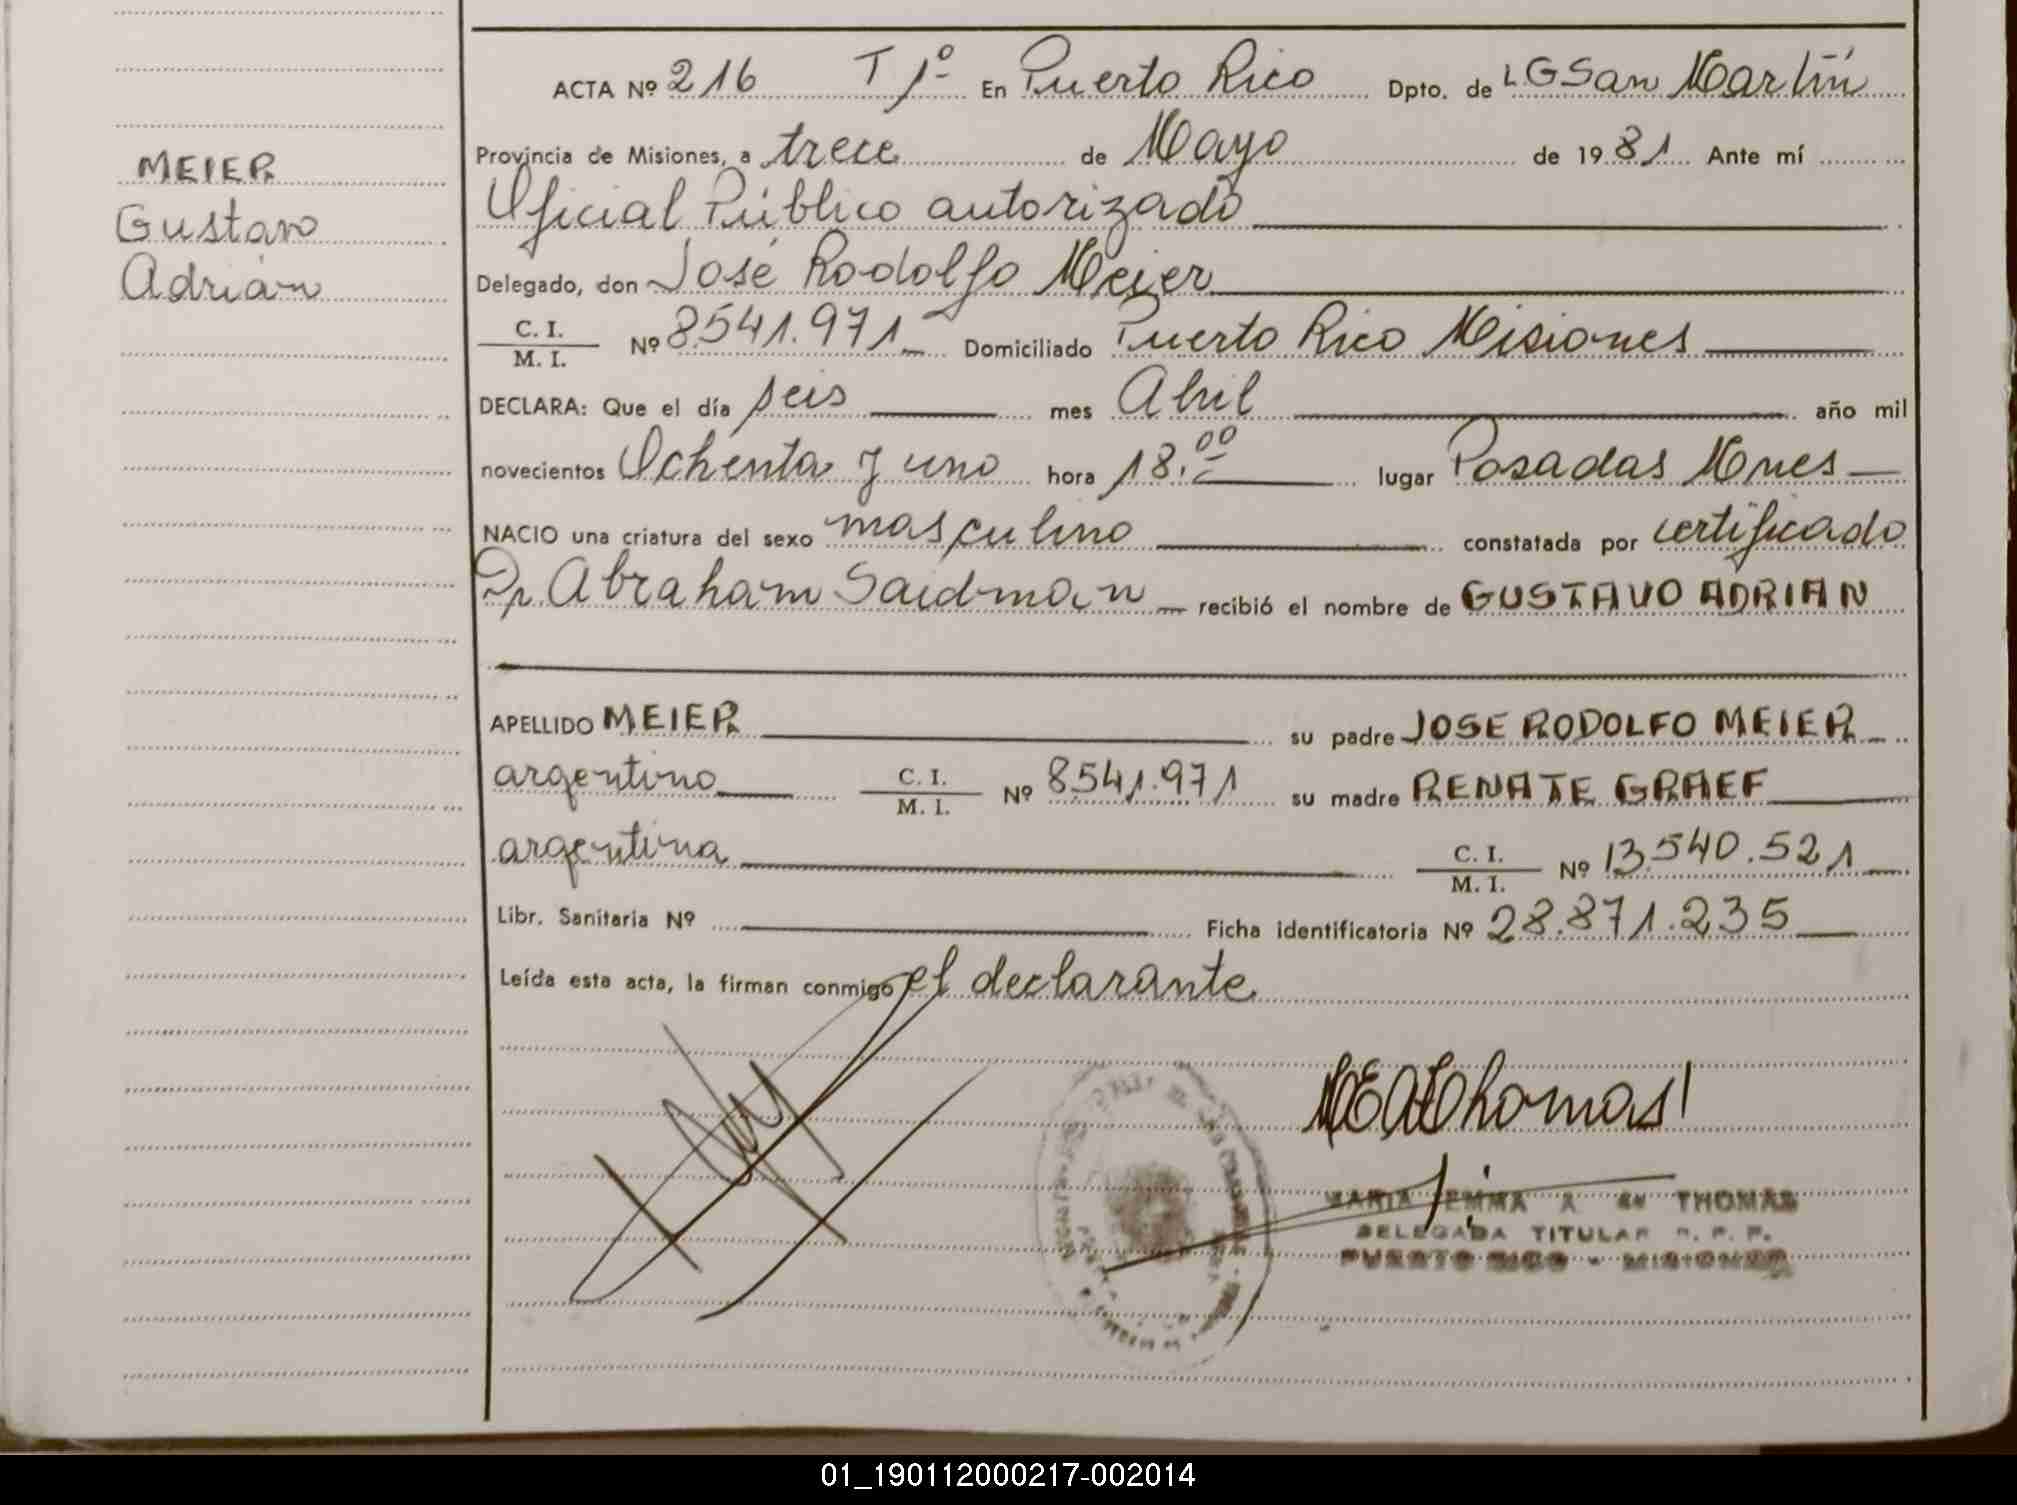 ACTA Nº 216 T 1º En Puerto Rico Dpto. de LGSan Martín
Provincia de Misiones, a trece de Mayo de 1981 Ante mí
Oficial Público autorizado
Delegado, don José Rodolfo Meier
C. I.
M. I. Nº 8.541.971 Domiciliado Puerto Rico Misiones
DECLARA: Que el día seis mes Abril año mil
novecientos Ochenta y uno hora 18.00 lugar Posadas Mnes
NACIO una criatura del sexo masculino constatada por certificado
Dr. Abraham Saidman recibió el nombre de GUSTAVO ADRIAN
APELLIDO MEIER su padre JOSE RODOLFO MEIER
argentino C. I. M. I. Nº 8.541.971 su madre RENATE GRAEF
argentina C. I. M. I. Nº 13.540.521
Libr. Sanitaria Nº Ficha identificatoria Nº 28.871.235
Leída esta acta, la firman conmigo el declarante
MEAThomas
MARIA EMMA A de THOMAS
DELEGADA TITULAR R. P. P.
PUERTO RICO - MISIONES
MEIER
Gustavo
Adrián
01_190112000217-002014